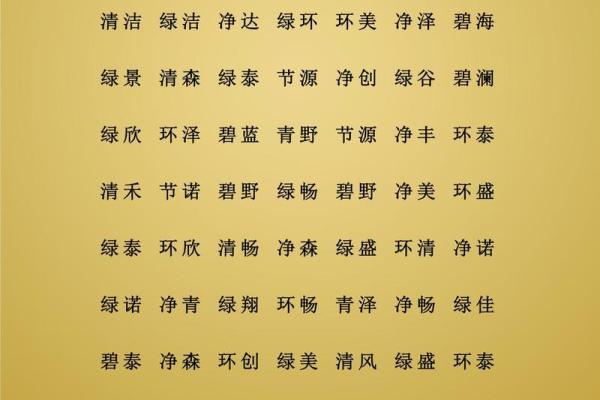 清洁 绿洁 净达 绿环 环美 净泽 碧海
绿景 清森 绿泰 节源 净创 绿谷 碧澜
绿欣 环泽 碧蓝 青野 节源 净丰 环泰
清禾 节诺 碧野 绿畅 碧野 净美 环盛
绿泰 环欣 清畅 净森 绿盛 环清 净诺
绿诺 净青 绿翔 环畅 青泽 净畅 绿佳
碧泰 净森 环创 绿美 清风 绿盛 环泰